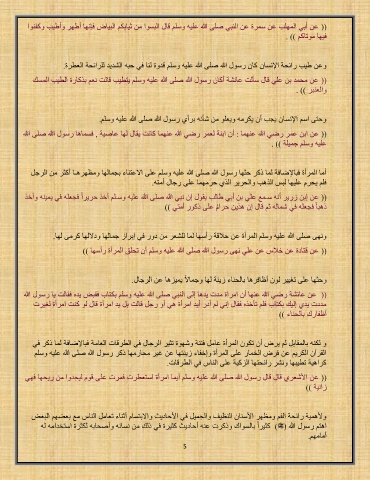 (( عن أبي المهلب عن سمرة عن النبي صلى الله عليه وسلم قال البسوا من ثيابكم البياض فإنها أطهر وأطيب وكفنوا
فيها موتاكم )) .
وعن طيب رائحة الإنسان كان رسول الله صلى الله عليه وسلم قدوة لنا في حبه الشديد للرائحة العطرة.
(( عن محمد بن علي قال سألت عائشة أكان رسول الله صلى الله عليه وسلم يتطيب قالت نعم بذكارة الطيب المسك
والعنبر )) .
وحتى اسم الإنسان يجب أن يكرمه ويعلو من شأنه برأي رسول الله صلى الله عليه وسلم.
(( عن ابن عمر رضي الله عنهما : أن ابنة لعمر رضي الله عنهما كانت يقال لها عاصية . فسماها رسول الله صلى الله
عليه وسلم جميلة )) .
أما المرأة فبالإضافة لما ذكر حثها رسول الله صلى الله عليه وسلم على الاعتناء بجمالها ومظهرها أكثر من الرجل
فلم يحرم عليها لبس الذهب والحرير الذي حرمهما على رجال أمته.
(( عن ابن زرير أنه سمع علي بن أبي طالب يقول إن نبي الله صلى الله عليه وسلم أخذ حريراً فجعله في يمينه وأخذ
ذهباً فجعله في شماله ثم قال إن هذين حرام على ذكور أمتي ))
ونهى صلى الله عليه وسلم المرأة عن حلاقة رأسها لما للشعر من دور في إبراز جمالها ودلالها كرمى لها.
(( عن قتادة عن خلاس عن علي نهى رسول الله صلى الله عليه وسلم أن تحلق المرأة رأسها ))
وحثها على تغيير لون أظافرها بالحناء زينة لها وجمالاً يميزها عن الرجال.
(( عن عائشة رضي الله عنها أن امرأة مدت يدها إلى النبي صلى الله عليه وسلم بكتاب فقبض يده فقالت يا رسول الله
مددت يدي إليك بكتاب فلم تأخذه فقال إني لم أدر أيد امرأة هي أو رجل قالت بل يد امرأة قال لو كنت امرأة لغيرت
أظفارك بالحناء ))
و لكنه بالمقابل لم يرض أن تكون المرأة عامل فتنة وشهوة تثير الرجال في الطرقات العامة فبالإضافة لما ذكر في
القرآن الكريم عن فرض الخمار على المرأة وإخفاء زينتها عن غير محارمها ذكر رسول الله صلى الله عليه وسلم
كراهية تطيبها ونشر رائحتها الزكية على الناس في الطرقات.
(( عن الأشعري قال قال رسول الله صلى الله عليه وسلم أيما امرأة استعطرت فمرت على قوم ليجدوا من ريحها فهي
زانية ))
ولأهمية رائحة الفم ومظهر الأسنان النظيف والجميل في الأحاديث والابتسام أثناء تعامل الناس مع بعضهم البعض
اهتم رسول الله (ﷺ) كثيراً بالسواك وذكرت عنه أحاديث كثيرة في ذلك من نسائه وأصحابه لكثرة استخدامه له
أمامهم.
5